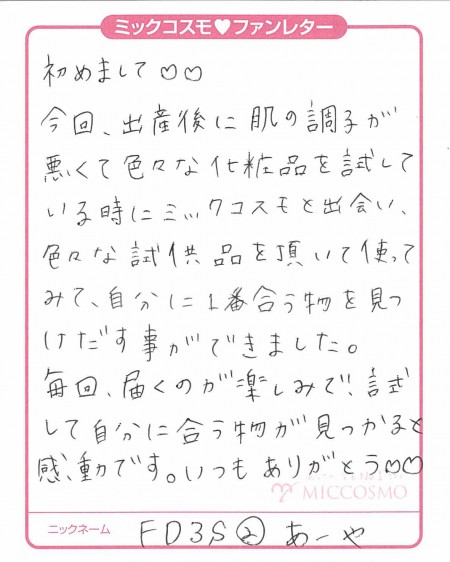 ミックコスモ♥ファンレター
初めまして♡♡
今回、出産後に肌の調子が
悪くて色々な化粧品を試して
いる時にミックコスモと出会い、
色々な試供品を頂いて使って
みて、自分に1番合う物を見つ
けだす事ができました。
毎回、届くのが楽しみで、試
して自分に合う物が見つかると
感動です。いつもありがとう♡♡
MICCOSMO
ニックネーム FD3S② あーや